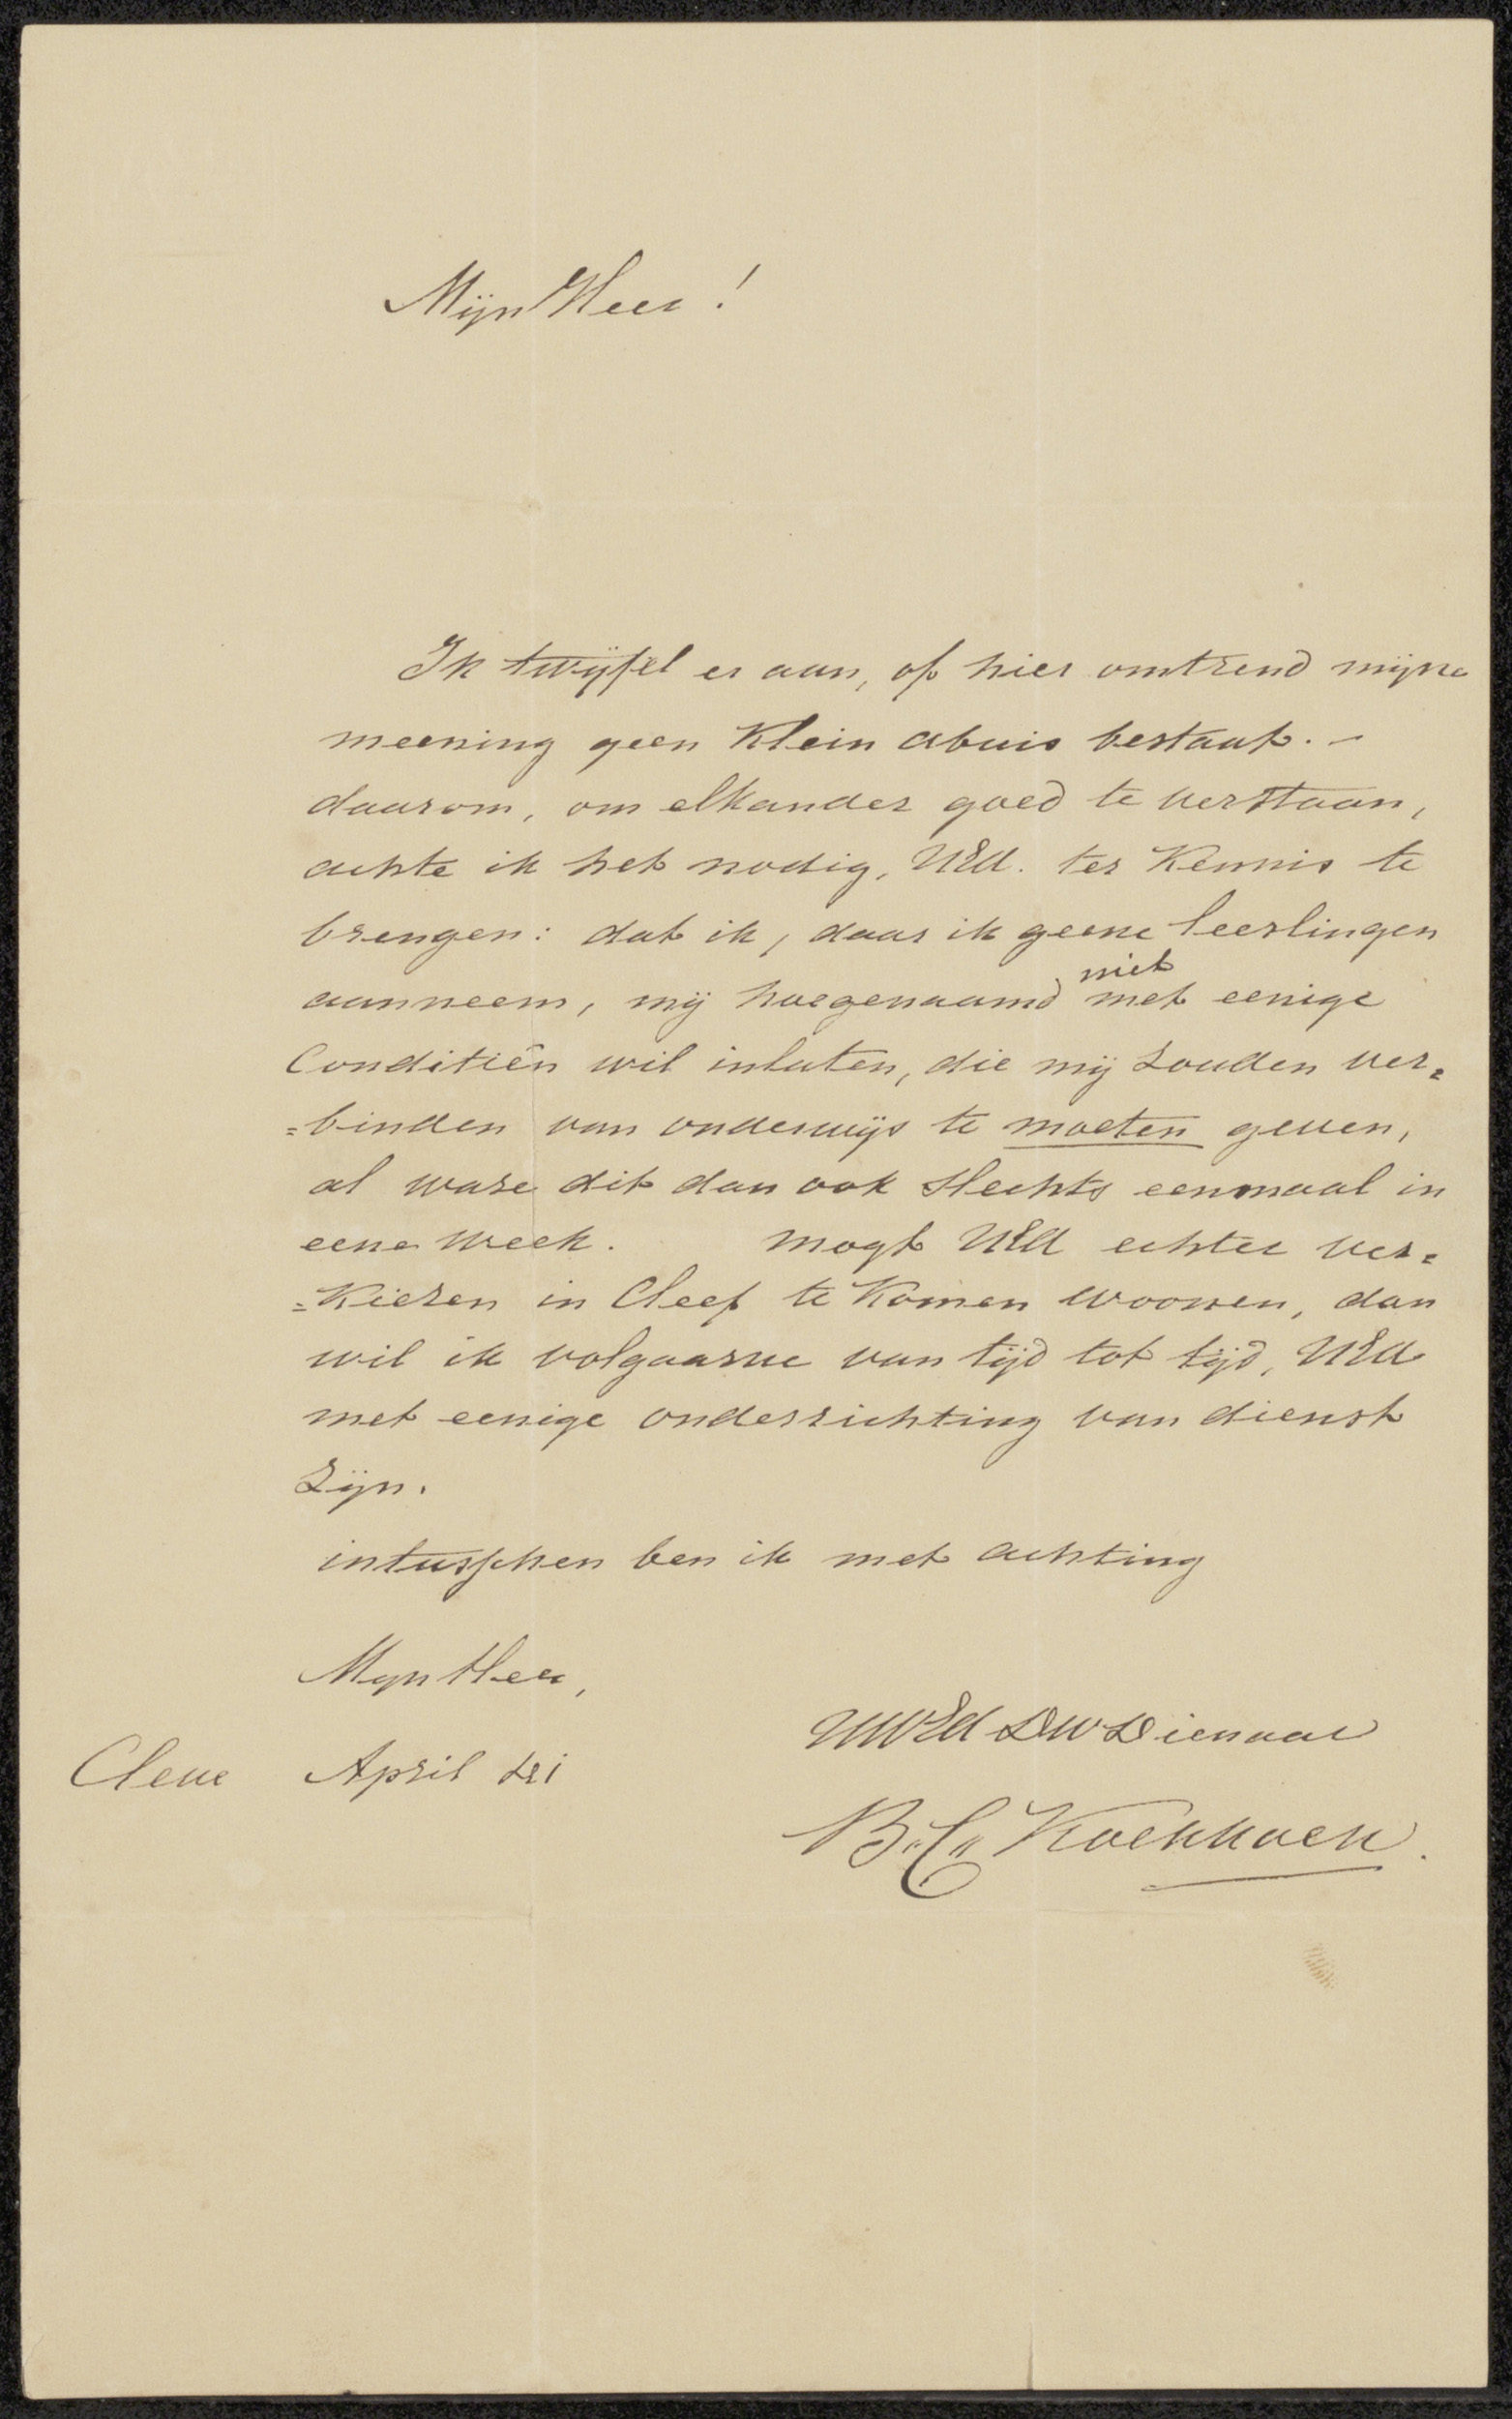 Mijn Heer!
Ik twijfel er aan, of hier omtrend mijne
meening geen klein abuis bestaat. -
daarom, om elkander goed te verstaan,
achte ik het nodig, UEd. ter Kennis te
brengen: dat ik, daar ik geene leerlingen
niet
aanneem, mij hoegenaamd met eenige
Conditiën wil inlaten, die mij zouden ver=
=binden van onderwijs te moeten geven,
al ware dit dan ook slechts eenmaal in
eene Week. mogt UEd echter ver=
=kiezen in Cleef te Komen woonen, dan
wil ik volgaarne van tijd tot tijd, UEd
met eenige onderrichting van dienst
zijn.
intusschen ben ik met achting
Mijn Heer,
UWEd DWDienaar
Cleve April
B. C. Koekkoek.